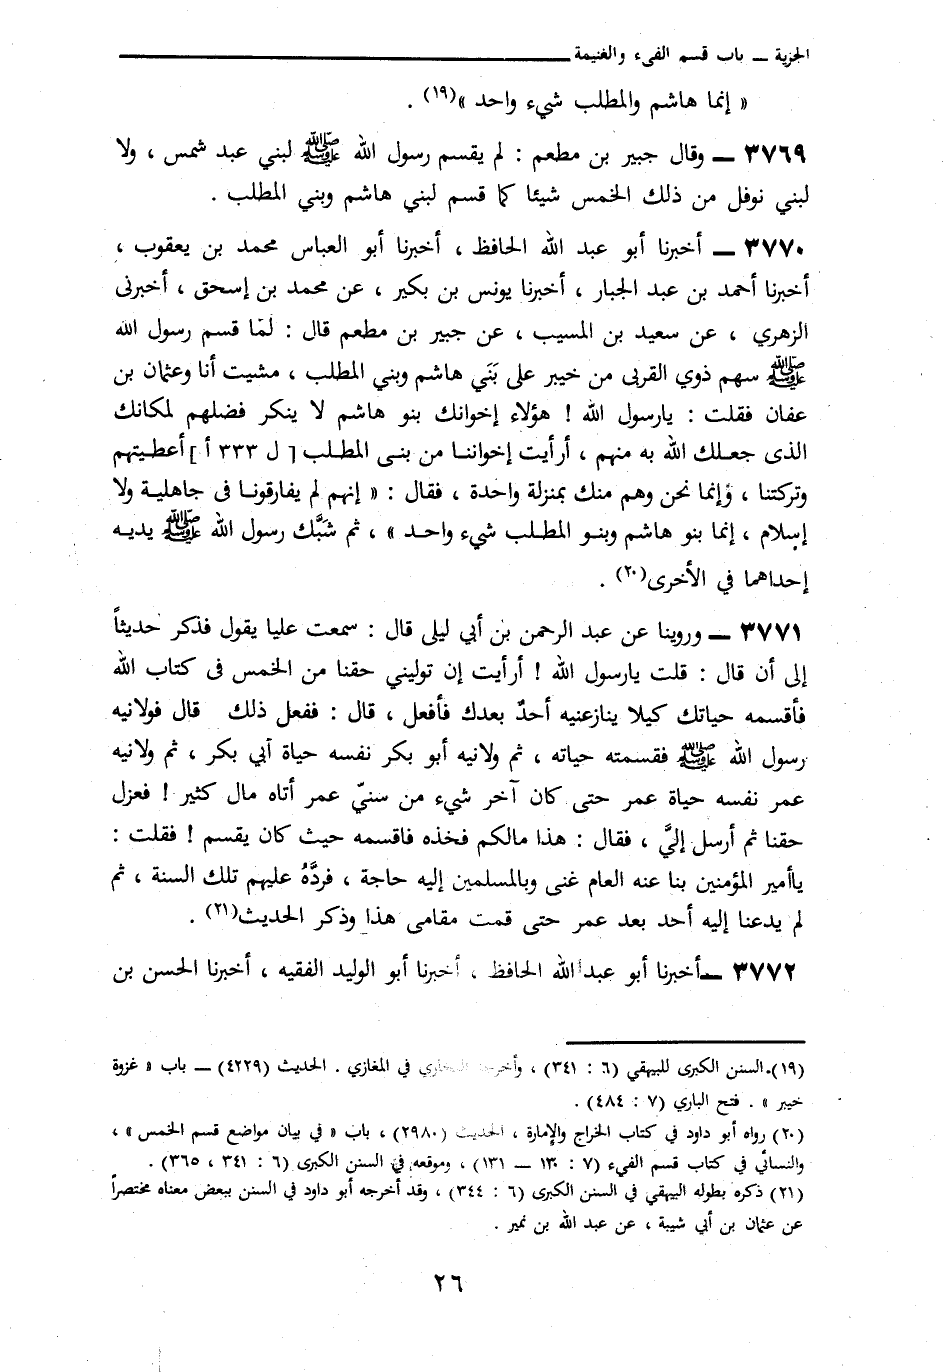 الجزية ــ باب قسم الفىء والغنيمة
« إنما هاشم والمطلب شيء واحد »(١٩) .
٣٧٦٩ ــ وقال جبير بن مطعم : لم يقسم رسول الله ﷺ لبني عبد شمس ، ولا
لبني نوفل من ذلك الخمس شيئا كما قسم لبني هاشم وبني المطلب .
٣٧٧٠ ــ أخبرنا أبو عبد الله الحافظ ، أخبرنا أبو العباس محمد بن يعقوب ،
أخبرنا أحمد بن عبد الجبار ، أخبرنا يونس بن بكير ، عن محمد بن إسحق ، أخبرنى
الزهري ، عن سعيد بن المسيب ، عن جبير بن مطعم قال : لَمّا قسم رسول الله
ﷺ سهم ذوي القربى من خيبر على بَنَي هاشم وبني المطلب ، مشيت أنا وعثمان بن
عفان فقلت : يارسول الله ! هؤلاء إخوانك بنو هاشم لا ينكر فضلهم لمكانك
الذى جعلك الله به منهم ، أرأيت إخواننا من بنى المطلب [ ل ٣٣٣ أ ] أعطيتهم
وتركتنا ، وُإنما نحن وهم منك بمنزلة واحدة ، فقال : « إنهم لم يفارقونا فى جاهلية ولا
إسلام ، إنما بنو هاشم وبنو المطلب شيء واحد » ، ثم شَبَّك رسول الله ﷺ يديه
إحداهما في الأخرى(٢٠) .
٣٧٧١ ــ وروينا عن عبد الرحمن بن أبي ليلى قال : سمعت عليا يقول فذكر حديثاً
إلى أن قال : قلت يارسول الله ! أرأيت إن توليني حقنا من الخمس فى كتاب الله
فأقسمه حياتك كيلا ينازعنيه أحدٌ بعدك فأفعل ، قال : ففعل ذلك قال فولانيه
رسول الله ﷺ فقسمته حياته ، ثم ولانيه أبو بكر نفسه حياة آبي بكر ، ثم ولانيه
عمر نفسه حياة عمر حتى كان آخر شيء من سنيّ عمر أتاه مال كثير ! فعزل
حقنا ثم أرسل إليَّ ، فقال : هذا مالكم فخذه فاقسمه حيث كان يقسم ! فقلت :
ياأمير المؤمنين بنا عنه العام غنى وبالمسلمين إليه حاجة ، فردَّهُ عليهم تلك السنة ، ثم
لم يدعنا إليه أحد بعد عمر حتى قمت مقامى هذا وذكر الحديث(٢١) .
٣٧٧٢ ــ أخبرنا أبو عبد الله الحافظ ، أخبرنا أبو الوليد الفقيه ، أخبرنا الحسن بن
(١٩) السنن الكبرى للبيهقي (٦ : ٣٤١) ، وأخرجه البخاري في المغازي . الحديث (٤٢٢٩) ــ باب « غزوة
خيبر » . فتح الباري (٧ : ٤٨٤) .
(٢٠) رواه أبو داود في كتاب الخراج والإمارة ، الحديث (٢٩٨٠) ، باب « في بيان مواضع قسم الخمس » ،
والنسائي في كتاب قسم الفيء (٧ : ١٣٠ ــ ١٣١) ، وموقعه في السنن الكبرى (٦ : ٣٤١ ، ٣٦٥) .
(٢١) ذكره بطوله البيهقي في السنن الكبرى (٦ : ٣٤٤) ، وقد أخرجه أبو داود في السنن ببعض معناه مختصراً
عن عثمان بن أبي شيبة ، عن عبد الله بن نمير .
٢٦